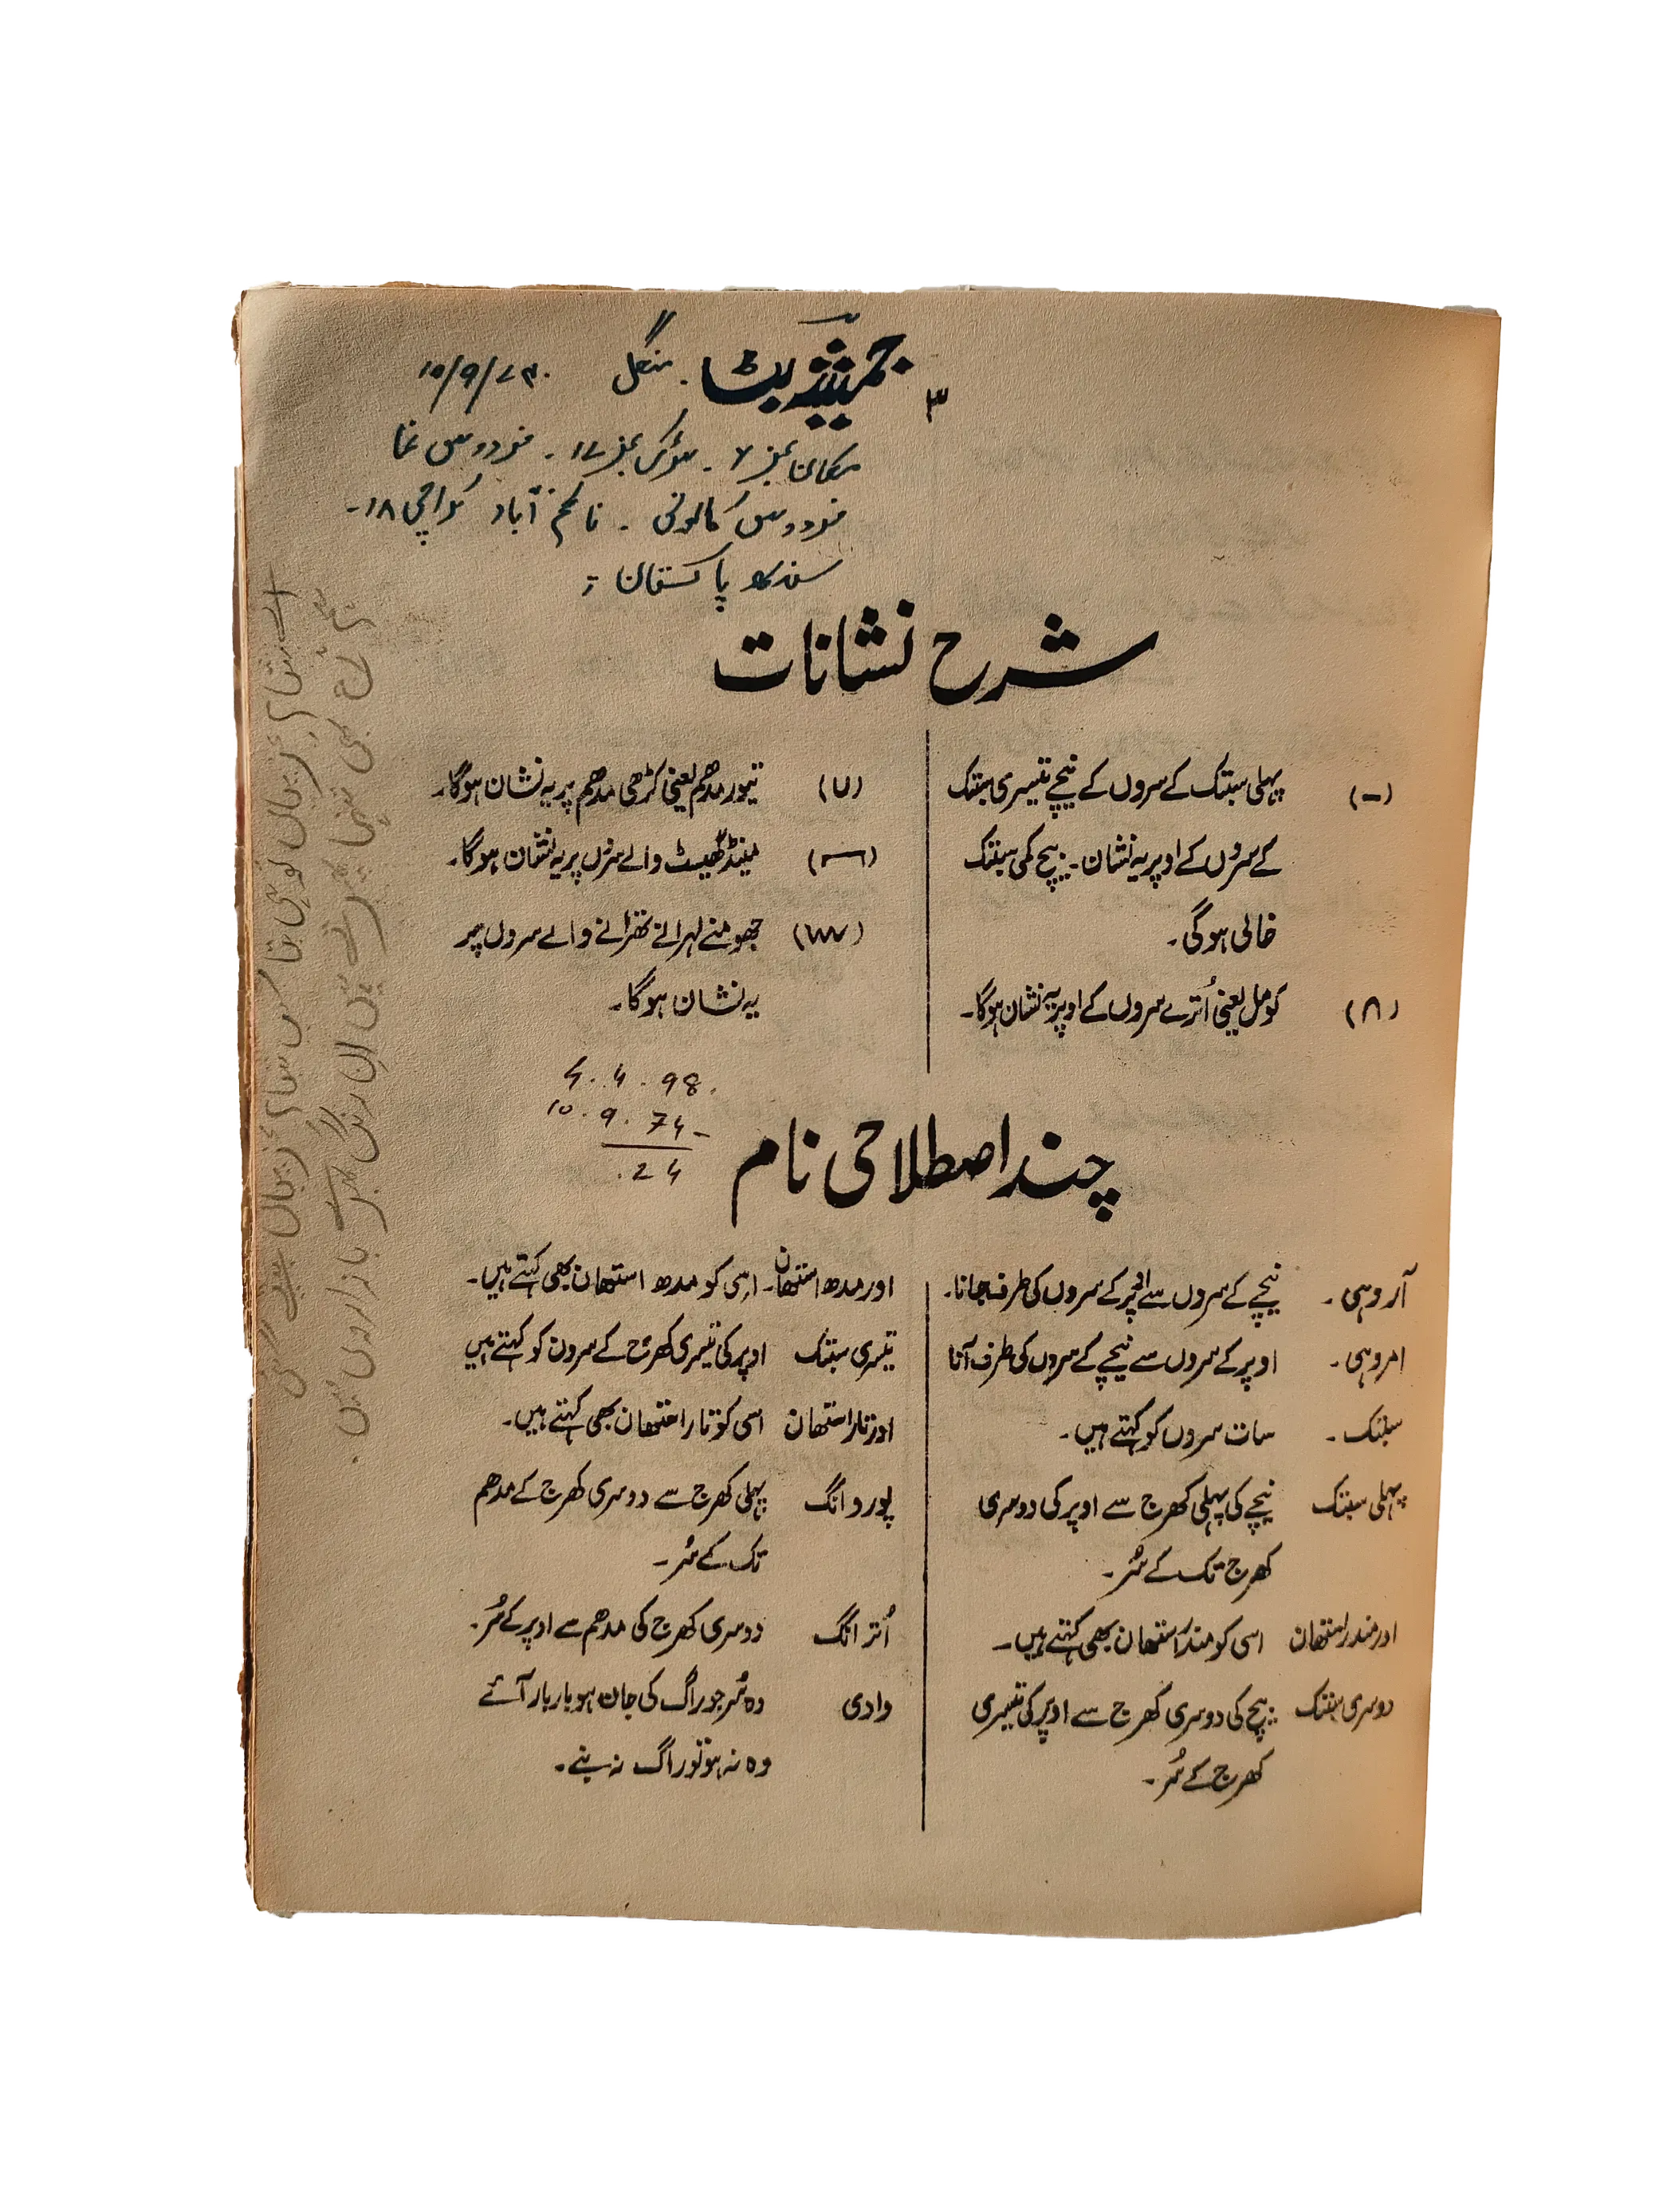 ۳
جمشید بٹ . منگل ۱۰/۹/۷۴.
مکان نمبز ۷ - سڑک نمبز ۱۷ - فردوس نما
فردوس کالونی . ناظم آباد کراچی ۱۸-
سندھ پاکستان
شرح نشانات
(-) پہلی سبتک کے سروں کے نیچے تیسری سبتک
کے سروں کے اوپر یہ نشان ۔ بیچ کی سبتک
خالی ہوگی ۔
(۸) کومل یعنی اُترے سروں کے اوپر یہ نشان ہوگا۔
(۷) تیور مدھم یعنی کڑھی مدھم پر یہ نشان ہوگا۔
مینڈ گھیسٹ والے سروں پر یہ نشان ہوگا۔
جھومنے لہرانے تھرانے والے سروں پر
یہ نشان ہوگا۔
4.4.98.
10.9.74-
.24
چند اصطلاحی نام
آروہی ۔ نیچے کے سروں سے اوپر کے سروں کی طرف جانا۔
امروہی ۔ اوپر کے سروں سے نیچے کے سروں کی طرف آنا
سبتک ۔ سات سروں کو کہتے ہیں ۔
پہلی سبتک نیچے کی پہلی کھرج سے اوپر کی دوسری
کھرج تک کے سُر ۔
اور مندر استھان اسی کو مندر استھان بھی کہتے ہیں ۔
دوسری سبتک بیچ کی دوسری کھرج سے اوپر کی تیسری
کھرج کے سُر ۔
اور مدھ استھان ۔ اسی کو مدھ استھان بھی کہتے ہیں ۔
تیسری سبتک اوپر کی تیسری کھرج کے سرون کو کہتے ہیں
اور تار استھان اسی کو تار استھان بھی کہتے ہیں ۔
پوروانگ پہلی کھرج سے دوسری کھرج کے مدھم
تک کے سُر ۔
اُتر انگ دوسری کھرج کی مدھم سے اوپر کے سُر ۔
وادی وہ سُر جو راگ کی جان ہو بار بار آئے
وہ نہ ہو تو راگ نہ بنے ۔